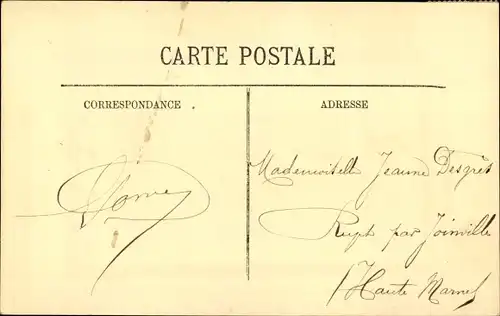 CARTE POSTALE
CORRESPONDANCE
ADRESSE
Mademoiselle Jeanne Desgrés
Rupt par Joinville
Haute Marne